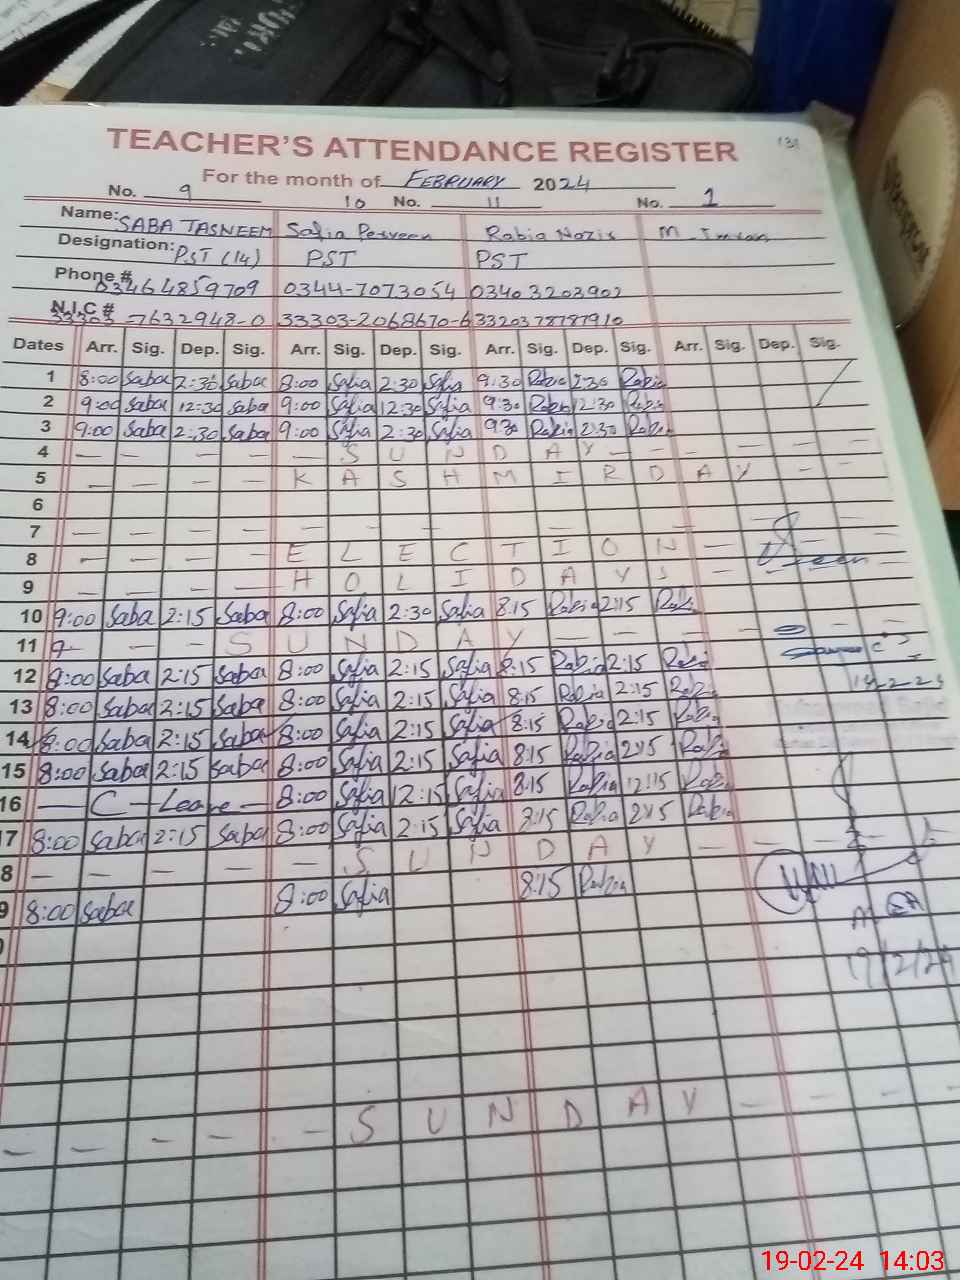 131
TEACHER'S ATTENDANCE REGISTER
For the month of FEBRUARY 2024
No. 9 10 No. 11 No. 1
Name: SABA TASNEEM Safia Perveen Rabia Nazir M. Imran
Designation: PST (14) PST PST
Phone # 03464859709 0344-7073054 03403203902
N.I.C # 33303-7632948-0 33303-2068670-6 3320378787910
Dates Arr. Sig. Dep. Sig. Arr. Sig. Dep. Sig. Arr. Sig. Dep. Sig. Arr. Sig. Dep. Sig.
1 8:00 Saba 2:30 Saba 8:00 Safia 2:30 Safia 9:30 Rabia 2:30 Rabia
2 9:00 Saba 12:30 Saba 9:00 Safia 12:30 Safia 9:30 Rabia 12:30 Rabia
3 9:00 Saba 2:30 Saba 9:00 Safia 2:30 Safia 9:30 Rabia 2:30 Rabia
4 — — — — — S U N D A Y — — —
5 — — — — K A S H M I R D A Y — —
6
7 — — — — — — — — — —
8 — — — — E L E C T I O N —
9 — — — — H O L I D A Y S —
10 9:00 Saba 2:15 Saba 8:00 Safia 2:30 Safia 8:15 Rabia 2:15 Rabia
11 9 — — — S U N D A Y — — — —
12 8:00 Saba 2:15 Saba 8:00 Safia 2:15 Safia 8:15 Rabia 2:15 Rabia
13 8:00 Saba 2:15 Saba 8:00 Safia 2:15 Safia 8:15 Rabia 2:15 Rabia
14 8:00 Saba 2:15 Saba 8:00 Safia 2:15 Safia 8:15 Rabia 2:15 Rabia
15 8:00 Saba 2:15 Saba 8:00 Safia 2:15 Safia 8:15 Rabia 2:15 Rabia
16 — C - Leave — 8:00 Safia 12:15 Safia 8:15 Rabia 12:15 Rabia
17 8:00 Saba 2:15 Saba 8:00 Safia 2:15 Safia 8:15 Rabia 2:15 Rabia
8 — — — — — S U N D A Y — — — —
9 8:00 Saba 8:00 Safia 8:15 Rabia
19/2/24
— — — — — S U N D A Y — — — —
19-02-24 14:03